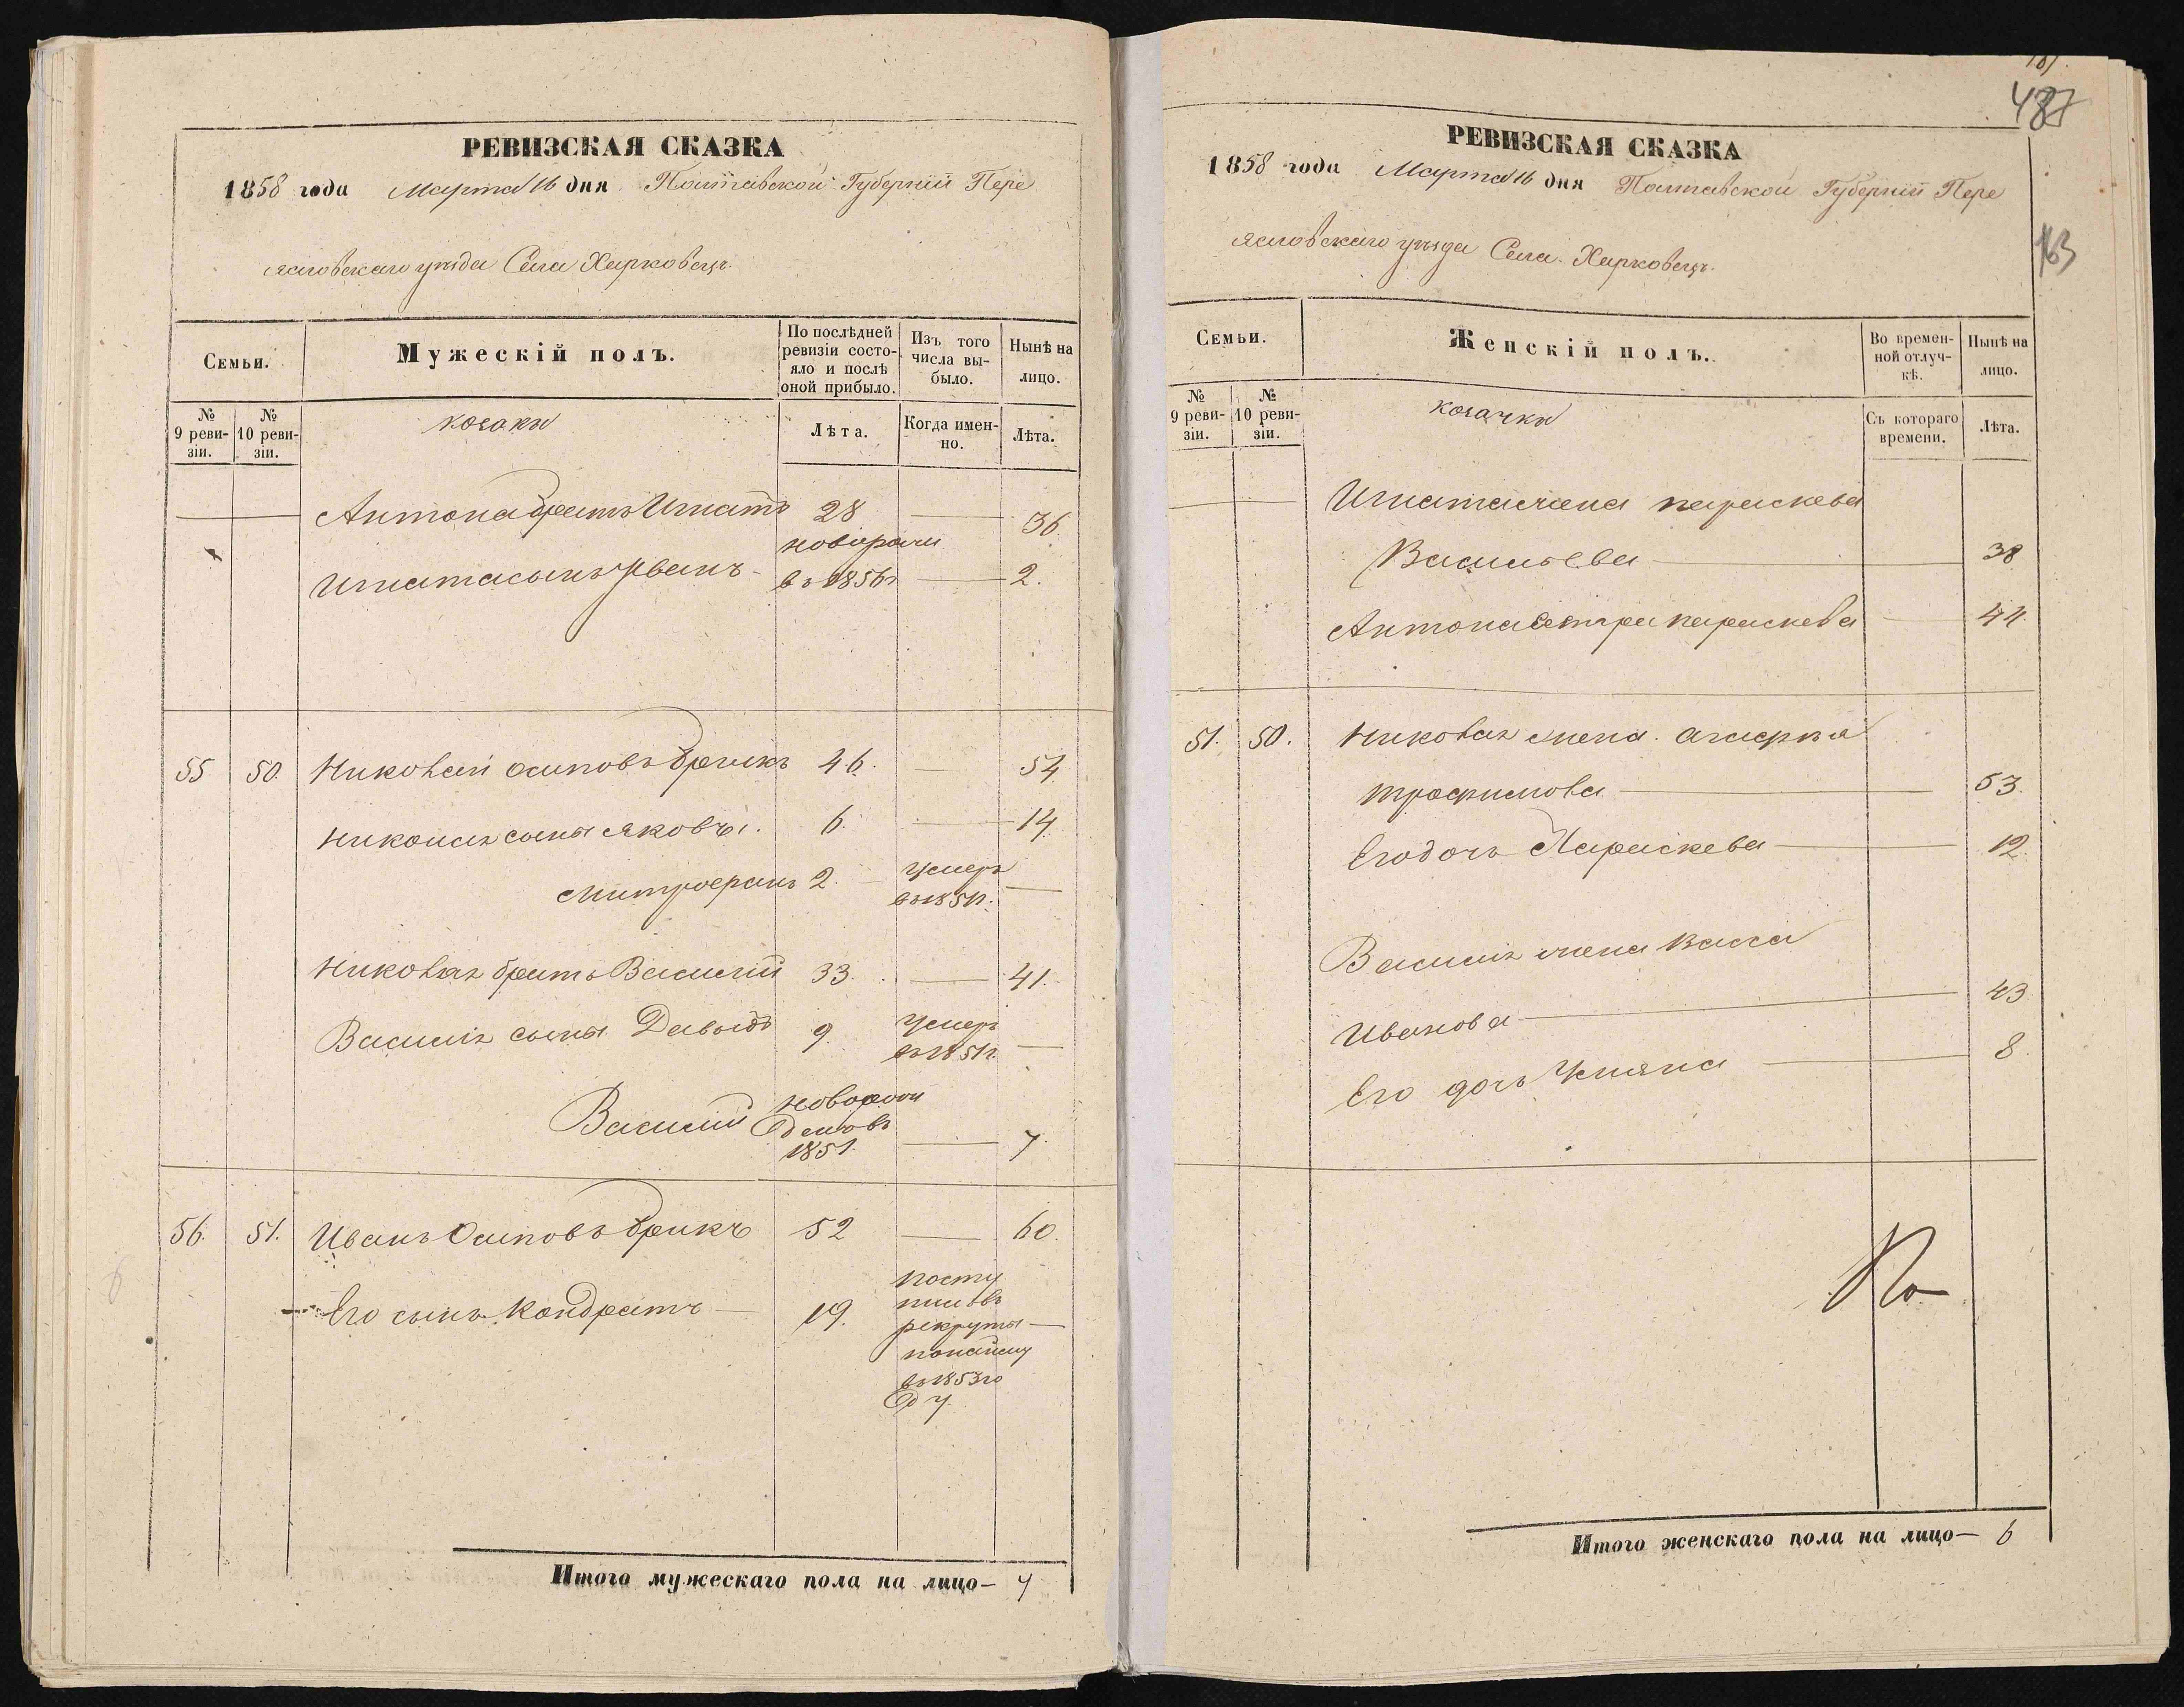 РЕВИЗСКАЯ СКАЗКА
1858 года Марта 16 дня Полтавской Губерніи Пере
яславскаго уезда Села Харковецъ.
Семьи.
Мужескій полъ.
По послѣдней ревизіи состояло и послѣ оной прибыло.
Изъ того числа выбыло.
Нынѣ на лицо.
№ 9 ревизіи.
№ 10 ревизіи.
козаки
Лѣта.
Когда именно.
Лѣта.
Антона братъ Игнатъ 28 — 36.
Игната сынъ Иванъ новорожи въ 1856г — 2.
55 50. Николай Осиповъ Брикъ 46. — 54
Николая сыны Яковъ 1. 6. — 14
Митрофанъ 2. умеръ въ 1851г. —
Николая братъ Василій 33. — 41.
Василія сыны Давыдъ 9. умеръ въ 1851г. —
Василій новорож
1851. — 7.
56. 51. Иванъ Осиповъ Брикъ 52 — 60.
Его сынъ Кондратъ — 19. посту
пилъ въ
рекруты —
понайму
въ 1853 го
ду
Итого мужескаго пола на лицо — 7
487
163
РЕВИЗСКАЯ СКАЗКА
1858 года Марта 16 дня Полтавской Губерніи Пере
яславскаго уезда Села Харковецъ.
Семьи.
Женскій полъ.
Во временной отлучкѣ.
Нынѣ на лицо.
№ 9 ревизіи.
№ 10 ревизіи.
козачки
Съ котораго времени.
Лѣта.
Игната жена параскева
Васильева — 38
Антона сестра параскева — 44.
51. 50. Николая жена агафія
трофимова — 53.
Его дочь Параскева — 12.
Василія жена Васса
Иванова — 43
Его дочь Уляна — 8.
Итого женскаго пола на лицо — 6